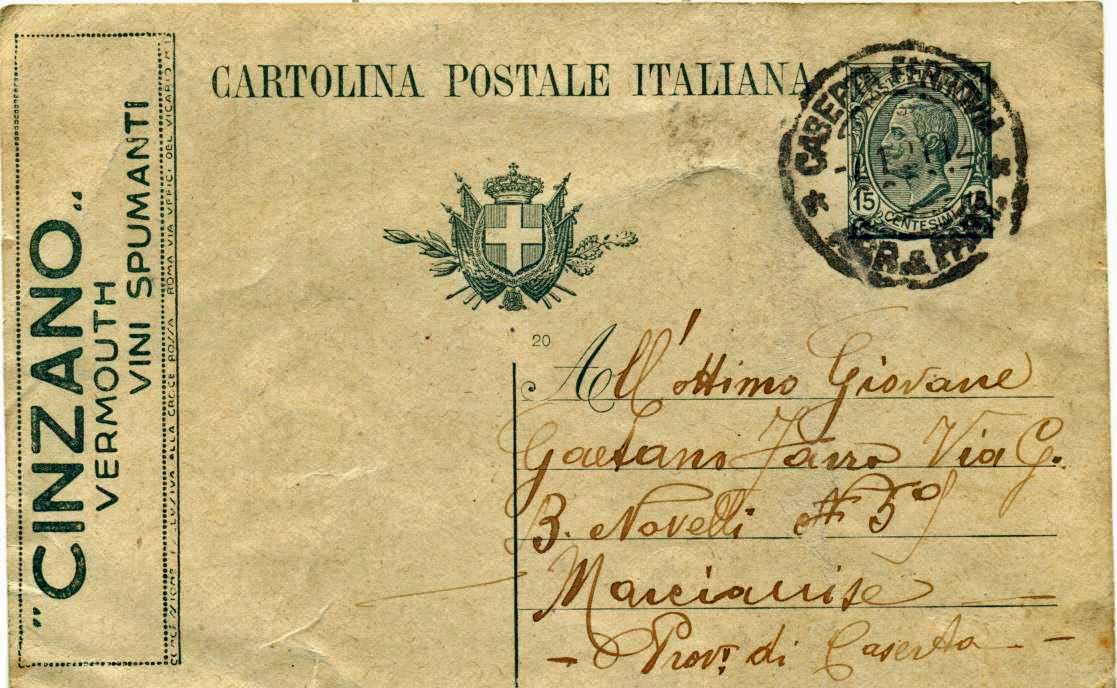 "CINZANO"
VERMOUTH
VINI SPUMANTI
ESCLUSIVA ALLA CROCE ROSSA ROMA VIA UFFICI DEL VICARIO
CARTOLINA POSTALE ITALIANA
CASERTA FERROVIA
15 15
CENTESIMI
20
All'ottimo Giovane
Gaetano Via G.
B. Novelli N 59
Marcianise
- Prov. di Caserta -